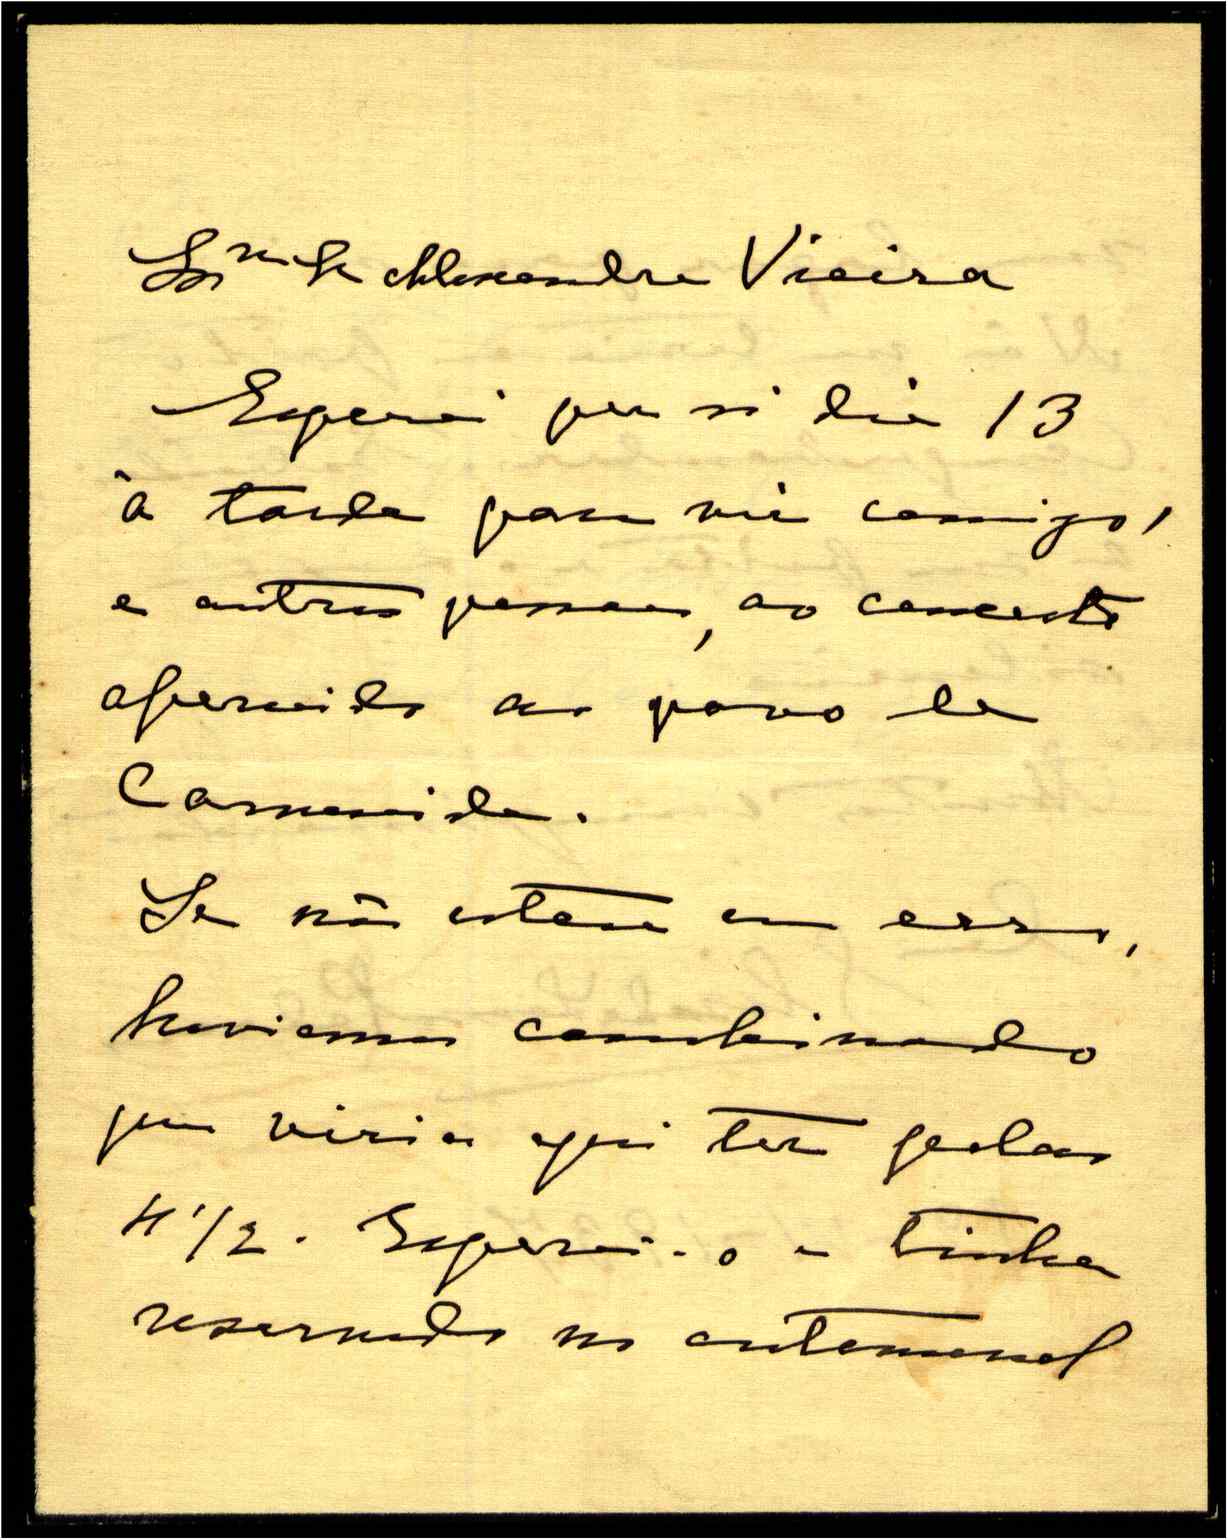 Snr. Alexandre Vieira
Esperei por si dia 13
à tarde para vir comigo,
e outras pessoas, ao concerto
oferecido ao povo de
Carnaxide.
Se não estou em erro,
haviamos combinado
que viria aqui ter pelas
4 1/2. Esperei-o e tinha
reservado no automovel